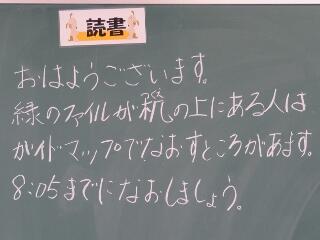 読書
おはようございます。
緑のファイルが机の上にある人は
ガイドマップでなおすところがあます。
8:05までになおしましょう。